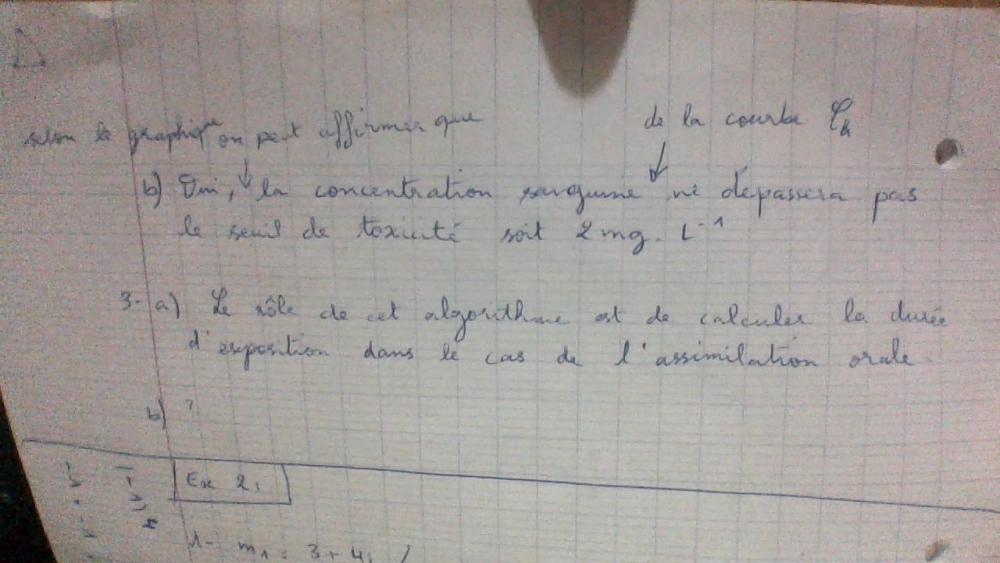 selon le graphique on peut affirmer que
de la courbe
b) Oui, la concentration sanguine ne dépassera pas
le seuil de toxicité soit 2 mg. L⁻¹
3- a) Le rôle de cet algorithme est de calculer la durée
d'exposition dans le cas de l'assimilation orale.
b) ?
Ex 2.
1- m₁ = 3 + 4i